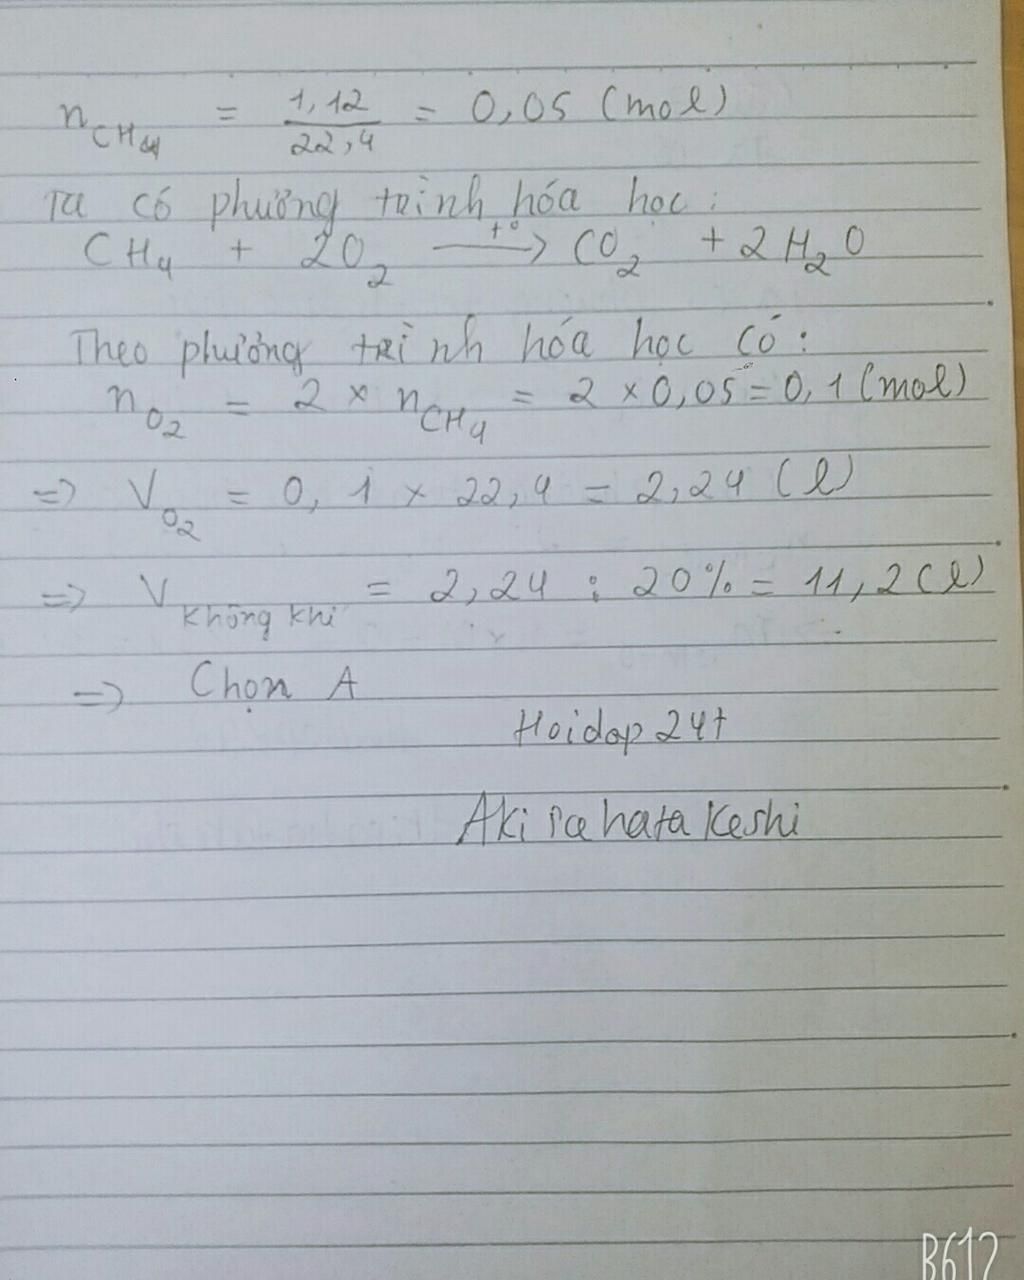 n CH4 = 1,12 / 22,4 = 0,05 (mol)
Ta có phương trình hóa học:
CH4 + 2O2 —t°→ CO2 + 2H2O
Theo phương trình hóa học có:
nO2 = 2 × nCH4 = 2 × 0,05 = 0,1 (mol)
=> VO2 = 0,1 × 22,4 = 2,24 (l)
=> V không khí = 2,24 : 20% = 11,2 (l)
=> Chọn A
Hoidap 24+
Akira hata Keshi
B612